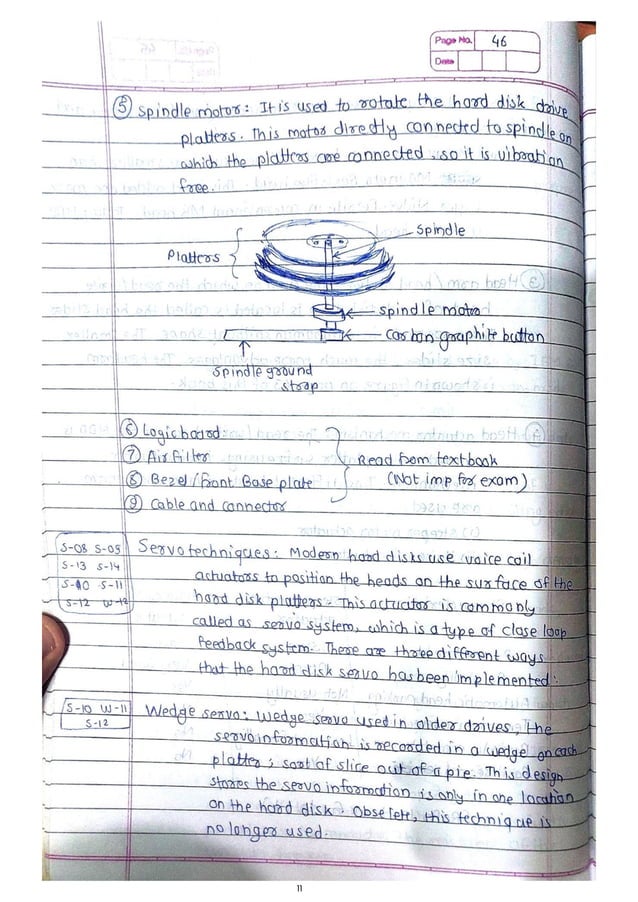 Page No. 46
Date
⑤ Spindle motor: It is used to rotate the hard disk drive
platters. This motor directly connected to spindle on
which the platters are connected, so it is vibration
free.
Spindle
Platters
spindle motor
Carbon graphite button
Spindle ground
strap
⑥ Logic board
⑦ Air Filter
⑧ Bezel/Front Base plate
⑨ Cable and connector
Read from textbook
(Not imp for exam)
S-08 S-05
S-13 S-14
S-10 S-11
S-12 W-12
Servo techniques: Modern hard disks use voice coil
actuators to position the heads on the surface of the
hard disk platters. This actuator is commonly
called as servo system, which is a type of close loop
feedback system. There are three different ways
that the hard disk servo has been implemented:
S-10 W-11
S-12
Wedge servo: Wedge servo used in older drives, the
servo information is recorded in a wedge on each
platter; sort of slice out of a pie. This design
stores the servo information is only in one location
on the hard disk. Obselete, this technique is
no longer used.
11